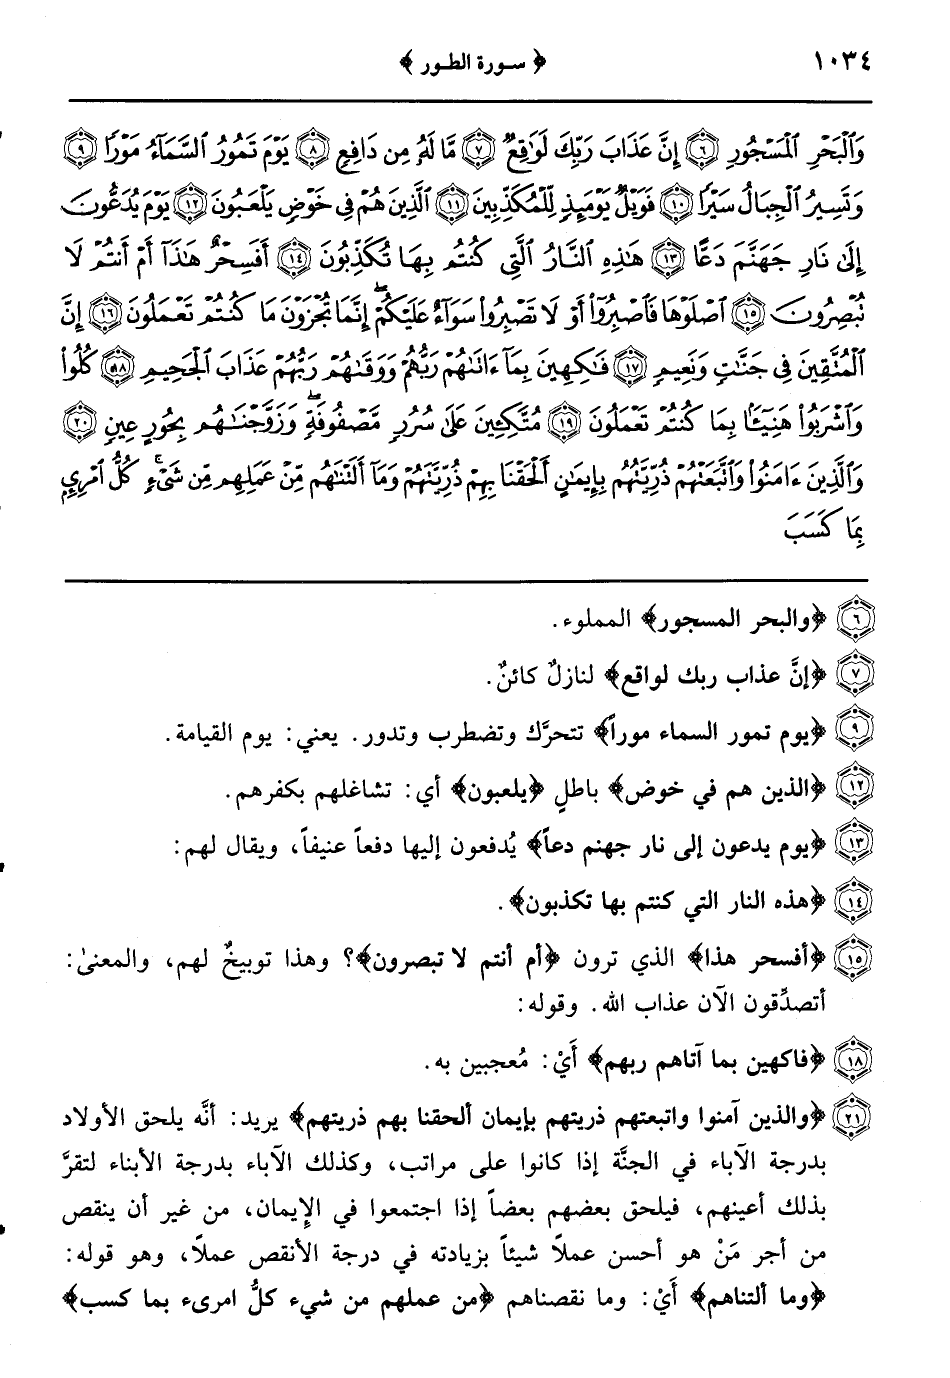 ١٠٣٤ ﴿ سورة الطور ﴾
وَٱلْبَحْرِ ٱلْمَسْجُورِ ٦ إِنَّ عَذَابَ رَبِّكَ لَوَٰقِعٌ ٧ مَّا لَهُۥ مِن دَافِعٍ ٨ يَوْمَ تَمُورُ ٱلسَّمَآءُ مَوْرًا ٩
وَتَسِيرُ ٱلْجِبَالُ سَيْرًا ١٠ فَوَيْلٌ يَوْمَئِذٍ لِّلْمُكَذِّبِينَ ١١ ٱلَّذِينَ هُمْ فِى خَوْضٍ يَلْعَبُونَ ١٢ يَوْمَ يُدَعُّونَ
إِلَىٰ نَارِ جَهَنَّمَ دَعًّا ١٣ هَٰذِهِ ٱلنَّارُ ٱلَّتِى كُنتُم بِهَا تُكَذِّبُونَ ١٤ أَفَسِحْرٌ هَٰذَآ أَمْ أَنتُمْ لَا
تُبْصِرُونَ ١٥ ٱصْلَوْهَا فَٱصْبِرُوٓا۟ أَوْ لَا تَصْبِرُوا۟ سَوَآءٌ عَلَيْكُمْ ۖ إِنَّمَا تُجْزَوْنَ مَا كُنتُمْ تَعْمَلُونَ ١٦ إِنَّ
ٱلْمُتَّقِينَ فِى جَنَّٰتٍ وَنَعِيمٍ ١٧ فَٰكِهِينَ بِمَآ ءَاتَىٰهُمْ رَبُّهُمْ وَوَقَىٰهُمْ رَبُّهُمْ عَذَابَ ٱلْجَحِيمِ ١٨ كُلُوا۟
وَٱشْرَبُوا۟ هَنِيٓـًٔۢا بِمَا كُنتُمْ تَعْمَلُونَ ١٩ مُتَّكِـِٔينَ عَلَىٰ سُرُرٍ مَّصْفُوفَةٍ ۖ وَزَوَّجْنَٰهُم بِحُورٍ عِينٍ ٢٠
وَٱلَّذِينَ ءَامَنُوا۟ وَٱتَّبَعَتْهُمْ ذُرِّيَّتُهُم بِإِيمَٰنٍ أَلْحَقْنَا بِهِمْ ذُرِّيَّتَهُمْ وَمَآ أَلَتْنَٰهُم مِّنْ عَمَلِهِم مِّن شَىْءٍ ۚ كُلُّ ٱمْرِئٍ
بِمَا كَسَبَ
٦ ﴿والبحر المسجور﴾ المملوء.
٧ ﴿إنَّ عذاب ربك لواقع﴾ لنازلٌ كائنٌ.
٩ ﴿يوم تمور السماء موراً﴾ تتحرَّك وتضطرب وتدور. يعني: يوم القيامة.
١٢ ﴿الذين هم في خوض﴾ باطلٍ ﴿يلعبون﴾ أي: تشاغلهم بكفرهم.
١٣ ﴿يوم يدعون إلى نار جهنم دعاً﴾ يُدفعون إليها دفعاً عنيفاً، ويقال لهم:
١٤ ﴿هذه النار التي كنتم بها تكذبون﴾.
١٥ ﴿أفسحر هذا﴾ الذي ترون ﴿أم أنتم لا تبصرون﴾؟ وهذا توبيخٌ لهم، والمعنىٰ:
أتصدِّقون الآن عذاب الله. وقوله:
١٨ ﴿فاكهين بما آتاهم ربهم﴾ أَيْ: مُعجبين به.
٢١ ﴿والذين آمنوا واتبعتهم ذريتهم بإيمان ألحقنا بهم ذريتهم﴾ يريد: أنَّه يلحق الأولاد
بدرجة الآباء في الجنَّة إذا كانوا على مراتب، وكذلك الآباء بدرجة الأبناء لتقرَّ
بذلك أعينهم، فيلحق بعضهم بعضاً إذا اجتمعوا في الإيمان، من غير أن ينقص
من أجر مَنْ هو أحسن عملاً شيئاً بزيادته في درجة الأنقص عملاً، وهو قوله:
﴿وما ألتناهم﴾ أَيْ: وما نقصناهم ﴿من عملهم من شيء كلُّ امرىء بما كسب﴾